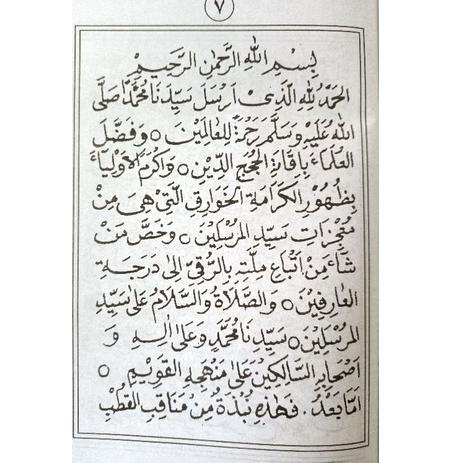 ٧
بِسْمِ اللهِ الرَّحْمٰنِ الرَّحِيْمِ
الحَمْدُ لِلهِ الَّذِيْ اَرْسَلَ سَيِّدَنَا مُحَمَّدًا صَلَّى
اللهُ عَلَيْهِ وَسَلَّمَ رَحْمَةً لِلْعَالَمِيْنَ ○ وَفَضَّلَ
العُلَمَاءَ بِاِقَامَةِ الحُجَجِ الدِّيْنِ ○ وَاَكْرَمَ الاَوْلِيَاءَ
بِظُهُوْرِ الكَرَامَةِ الخَوَارِقِ الَّتِيْ هِيَ مِنْ
مُعْجِزَاتِ سَيِّدِ المُرْسَلِيْنَ ○ وَخَصَّ مَنْ
شَاءَ مِنْ اَتْبَاعِ مِلَّتِهِ بِالرُّقِيِّ اِلَى دَرَجَةِ
العَارِفِيْنَ ○ وَالصَّلَاةُ وَالسَّلَامُ عَلَى سَيِّدِ
المُرْسَلِيْنَ ○ سَيِّدِنَا مُحَمَّدٍ وَعَلَى اٰلِهِ وَ
اَصْحَابِهِ السَّالِكِيْنَ عَلَى مَنْهَجِهِ القَوِيْمِ ○
اَمَّا بَعْدُ . فَهٰذِهِ نُبْذَةٌ مِنْ مَنَاقِبِ القُطْبِ